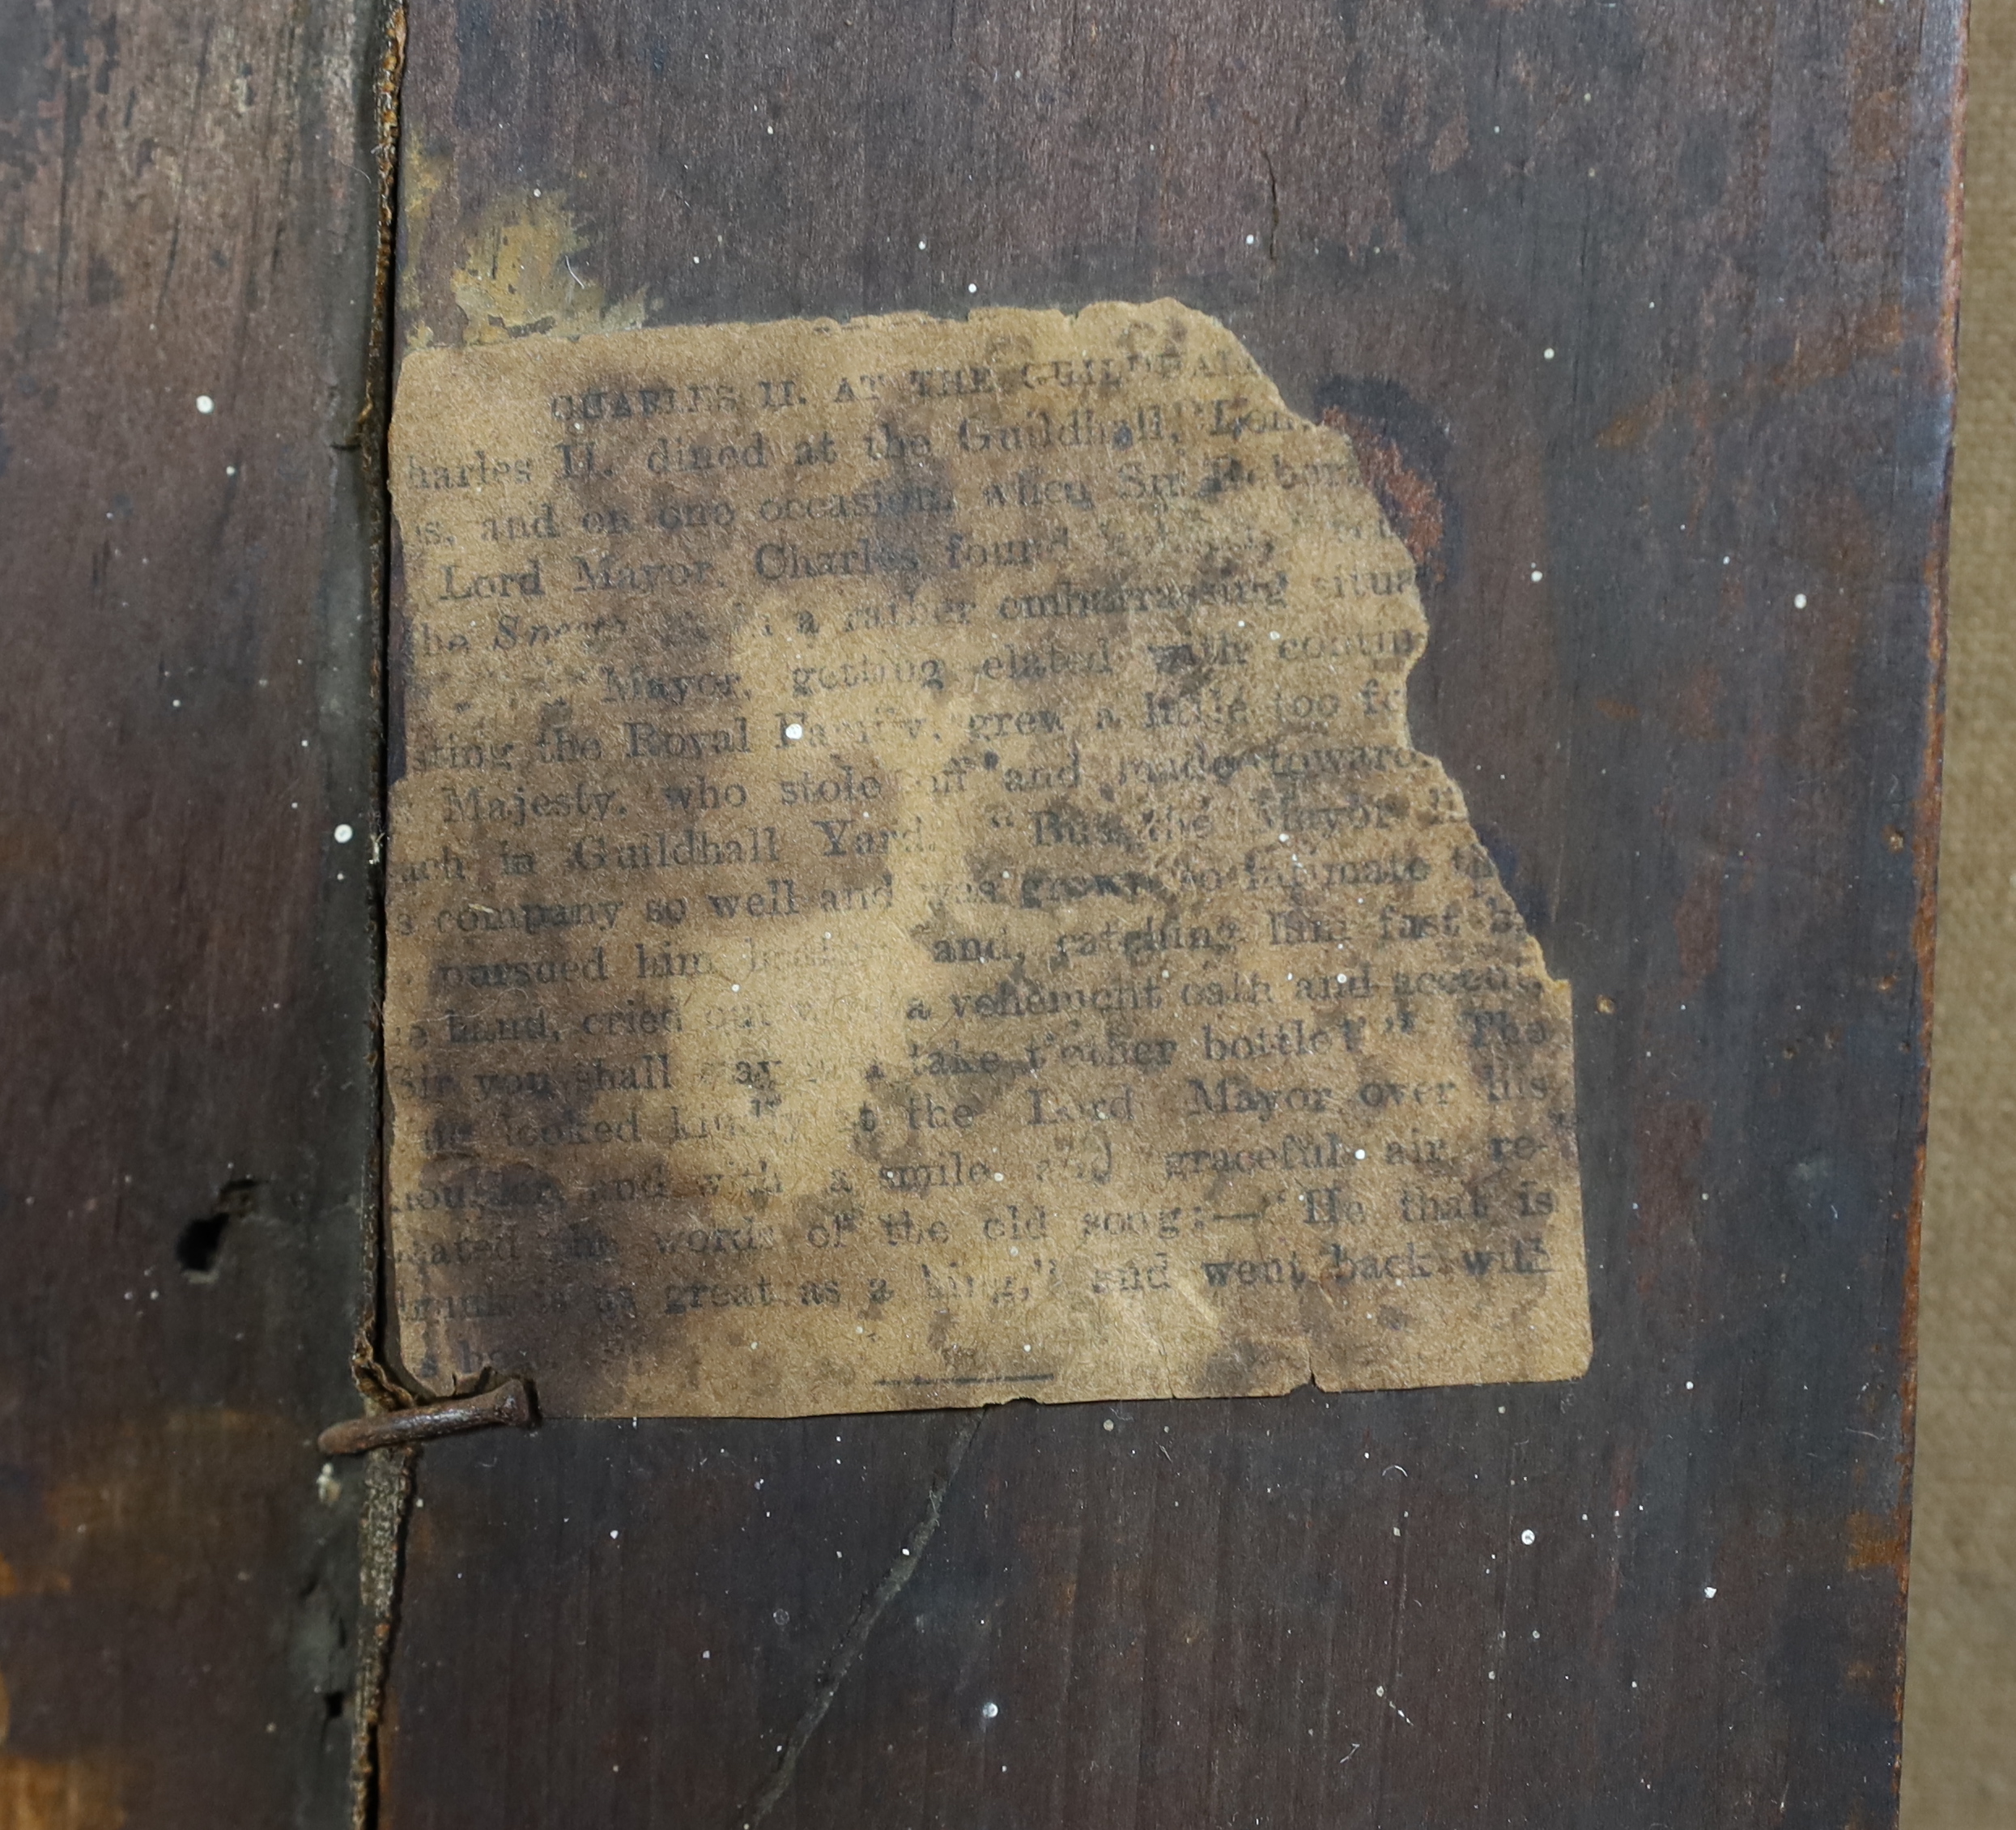 CHARLES II. AT THE GUILDHAL
harles II. dined at the Guildhall, Lon
s, and on one occasion, when Sir
Lord Mayor, Charles found
he a rather embarrassing situa
Mayor, getting elated with contin
sting the Royal Family, grew a little too f
Majesty, who stole off and made toward
ach in Guildhall Yard. "But the Mayor
s company so well and was grown so intimate th
pursued him and, catching him fast b
e hand, cried out with a vehement oath and accent,
Sir you shall stay and take t'other bottle!" The
ng looked kindly at the Lord Mayor over his
houlder, and with a smile and graceful air, re-
eated the words of the old song:—"He that is
runk is as great as a king," and went back with
s